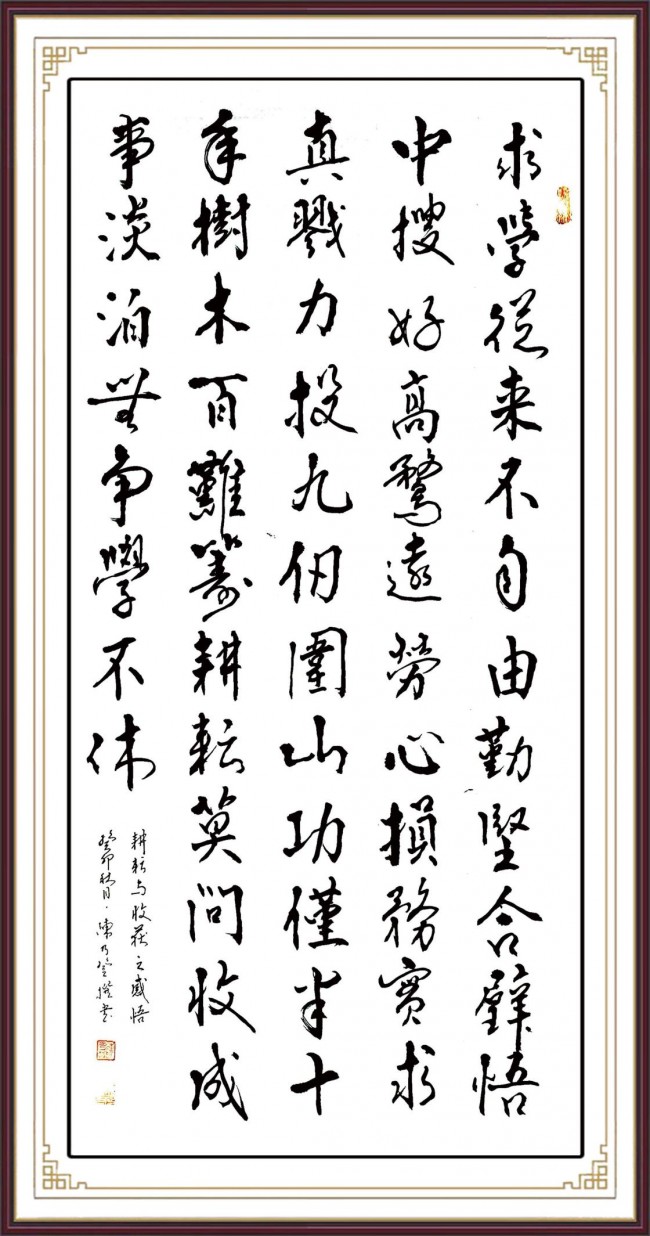 求學從来不自由勤堅合璧悟
中搜好高騖遠勞心損務實求
真戮力投九仞圍山功僅半十
年樹木百難籌耕耘莫問收成
事淡泊無争學不休
耕耘与收获之感悟
癸卯秋月·陳乃登撰书